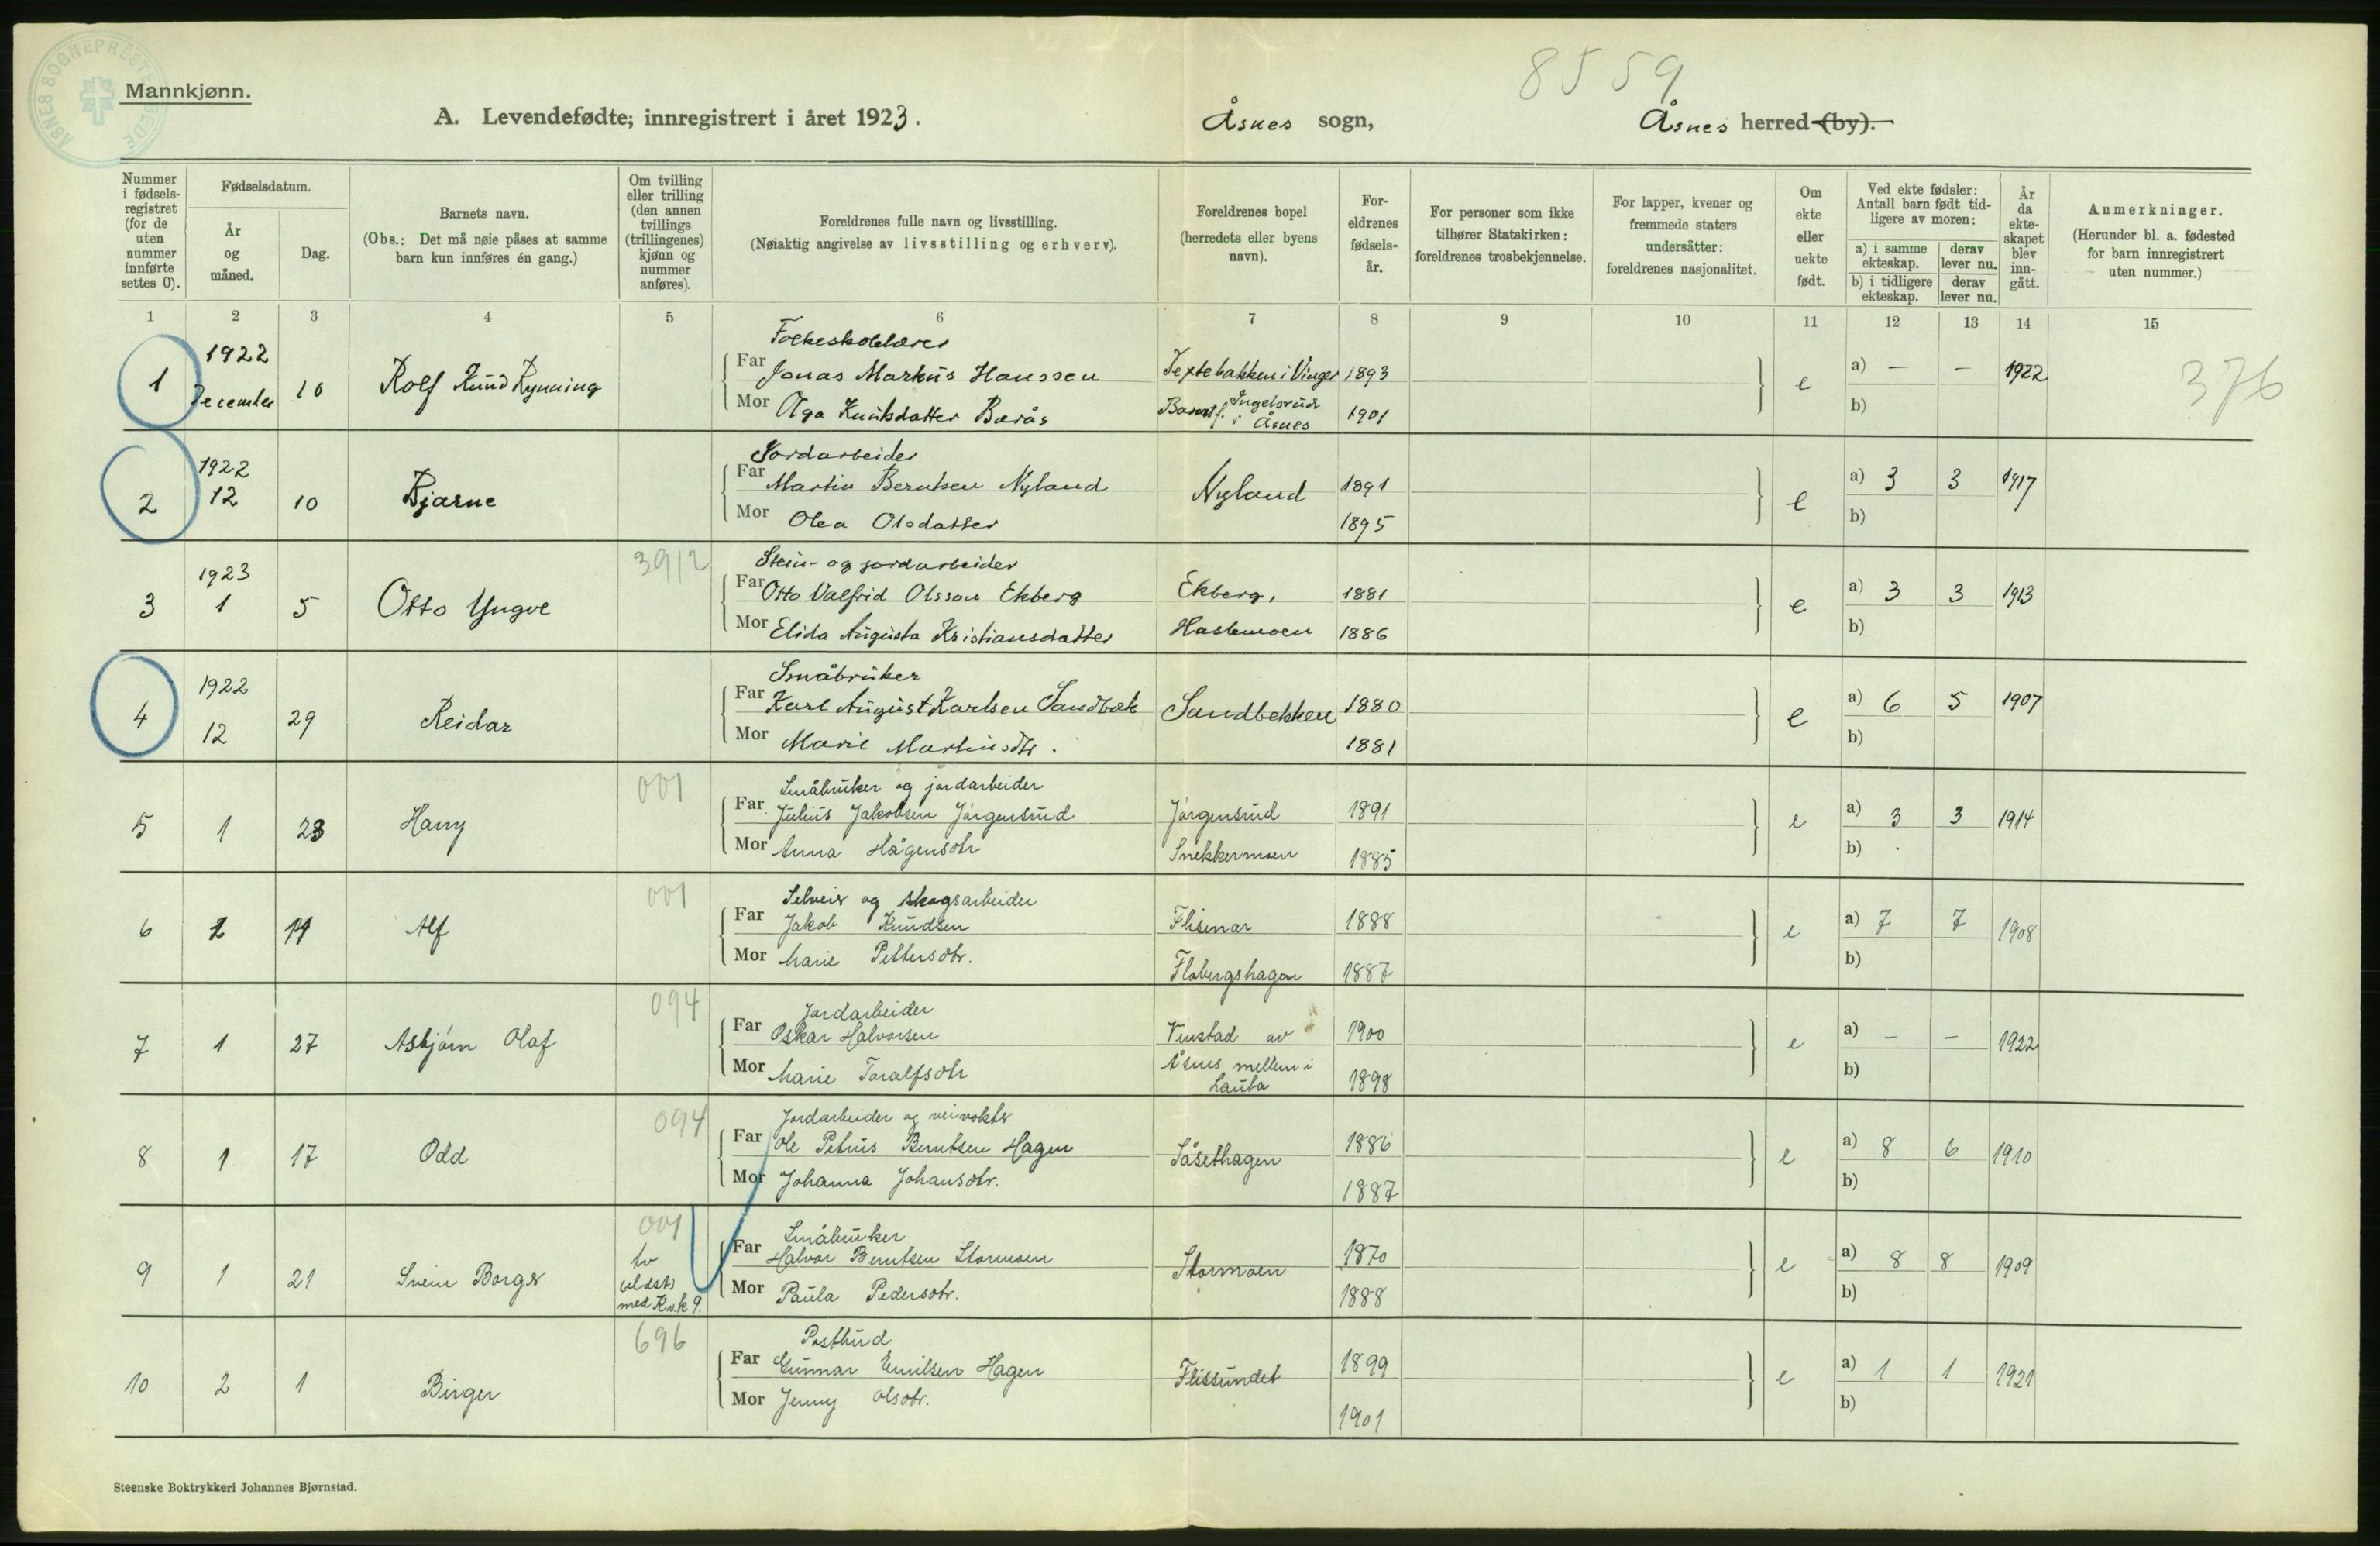 8559
ÅSNES SOGNEPRESTEEMBEDE
Mannkjønn.
A. Levendefødte; innregistrert i året 1923.
Åsnes sogn,
Åsnes herred (by).
Nummer i fødsels-registret (for de uten nummer innførte settes 0).
Fødselsdatum.
År og måned.
Dag.
Barnets navn.
(Obs.: Det må nøie påses at samme barn kun innføres én gang.)
Om tvilling eller trilling (den annen tvillings (trillingenes) kjønn og nummer anføres).
Foreldrenes fulle navn og livsstilling.
(Nøiaktig angivelse av livsstilling og erhverv).
Foreldrenes bopel (herredets eller byens navn).
For-eldrenes fødsels-år.
For personer som ikke tilhører Statskirken: foreldrenes trosbekjennelse.
For lapper, kvener og fremmede staters undersåtter: foreldrenes nasjonalitet.
Om ekte eller uekte født.
Ved ekte fødsler: Antall barn født tid-ligere av moren:
a) i samme ekteskap.
derav lever nu.
b) i tidligere ekteskap.
derav lever nu.
År da ekte-skapet blev inn-gått.
Anmerkninger.
(Herunder bl. a. fødested for barn innregistrert uten nummer.)
1 2 3 4 5 6 7 8 9 10 11 12 13 14 15
1922 Folkeskolelærer
1 December 10 Rolf Knud Rynning Far Jonas Markus Hanssen i Vinger 1893 e a) – – 1922 376
Mor Olga Knutsdatter Barås Ingelsrud i Åsnes 1901 b)
1922 Jordarbeider
2 12 10 Bjarne Far Martin Berntsen Nyland Nyland 1891 e a) 3 3 1917
Mor Olea Olsdatter 1895 b)
1923 3912 Stein- og jordarbeider
3 1 5 Otto Yngve Far Otto Valfrid Olsson Ekberg Ekberg, 1881 e a) 3 3 1913
Mor Elida Augusta Kristiansdatter Haslemoen 1886 b)
1922 Småbruker
4 12 29 Reidar Far Karl August Karlsen Sandbæk Sandbekken 1880 e a) 6 5 1907
Mor Marie Martinsdtr. 1881 b)
001 Småbruker og jordarbeider
5 1 23 Harry Far Julius Jakobsen Jørgensrud Jørgensrud 1891 e a) 3 3 1914
Mor Anna Hågensdtr Snekkermoen 1885 b)
001 Selveier og skogsarbeider
6 1 Alf Far Jakob Knudsen Flisenar 1888 e a) 7 7 1908
Mor Marie Pettersdtr. Flobergshagen 1887 b)
094 Jordarbeider
7 1 27 Asbjørn Olaf Far Oskar Halvorsen av 1900 e a) – – 1922
Mor Marie Toralfsdtr Åsnes mellem i 1898 b)
094 Jordarbeider og veivokter
8 1 17 Odd Far Ole Petrus Berntsen Hagen Såsethagen 1886 e a) 8 6 1910
Mor Johanna Johansdtr. 1887 b)
001 Småbruker
9 1 21 Svein Borger tv (eldst) med Kv.k 9. Far Halvor Berntsen Stormoen Stormoen 1870 e a) 8 8 1909
Mor Paula Pedersdtr. 1888 b)
696 Postbud
10 2 1 Birger Far Gunnar Emilsen Hagen Flissundet 1899 e a) 1 1 1921
Mor Jenny Olsdtr. 1901 b)
Steenske Boktrykkeri Johannes Bjørnstad.